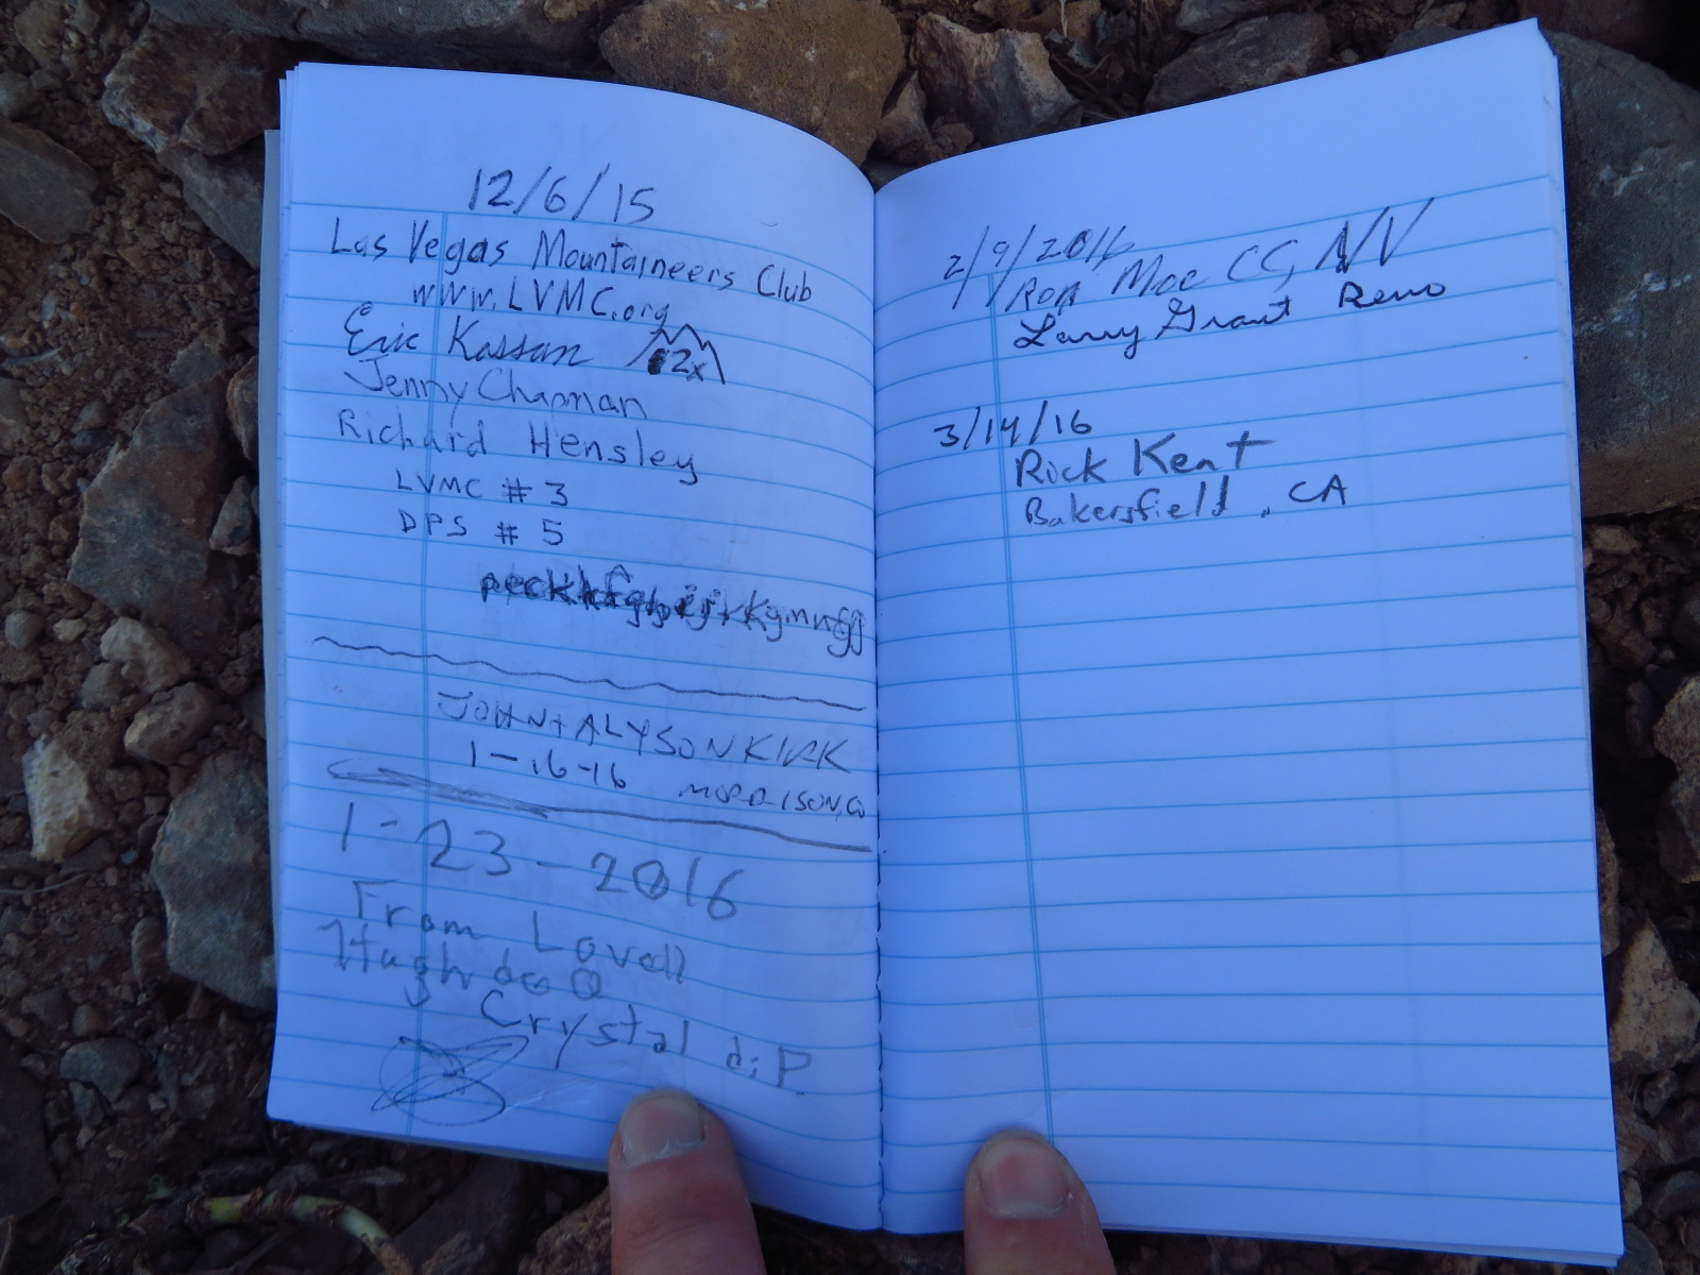 12/6/15
Las Vegas Mountaineers Club
www.LVMC.org
Eric Kassan 2x
Jenny Chapman
Richard Hensley
LVMC # 3
DPS # 5
JOHN + ALYSON KIRK
1-16-16 MORRISON, CO
1-23-2016
From Lovell
Hugh
Crystal
2/9/2016
Ron Moe CC, NV
Larry Grant Reno
3/14/16
Rick Kent
Bakersfield, CA